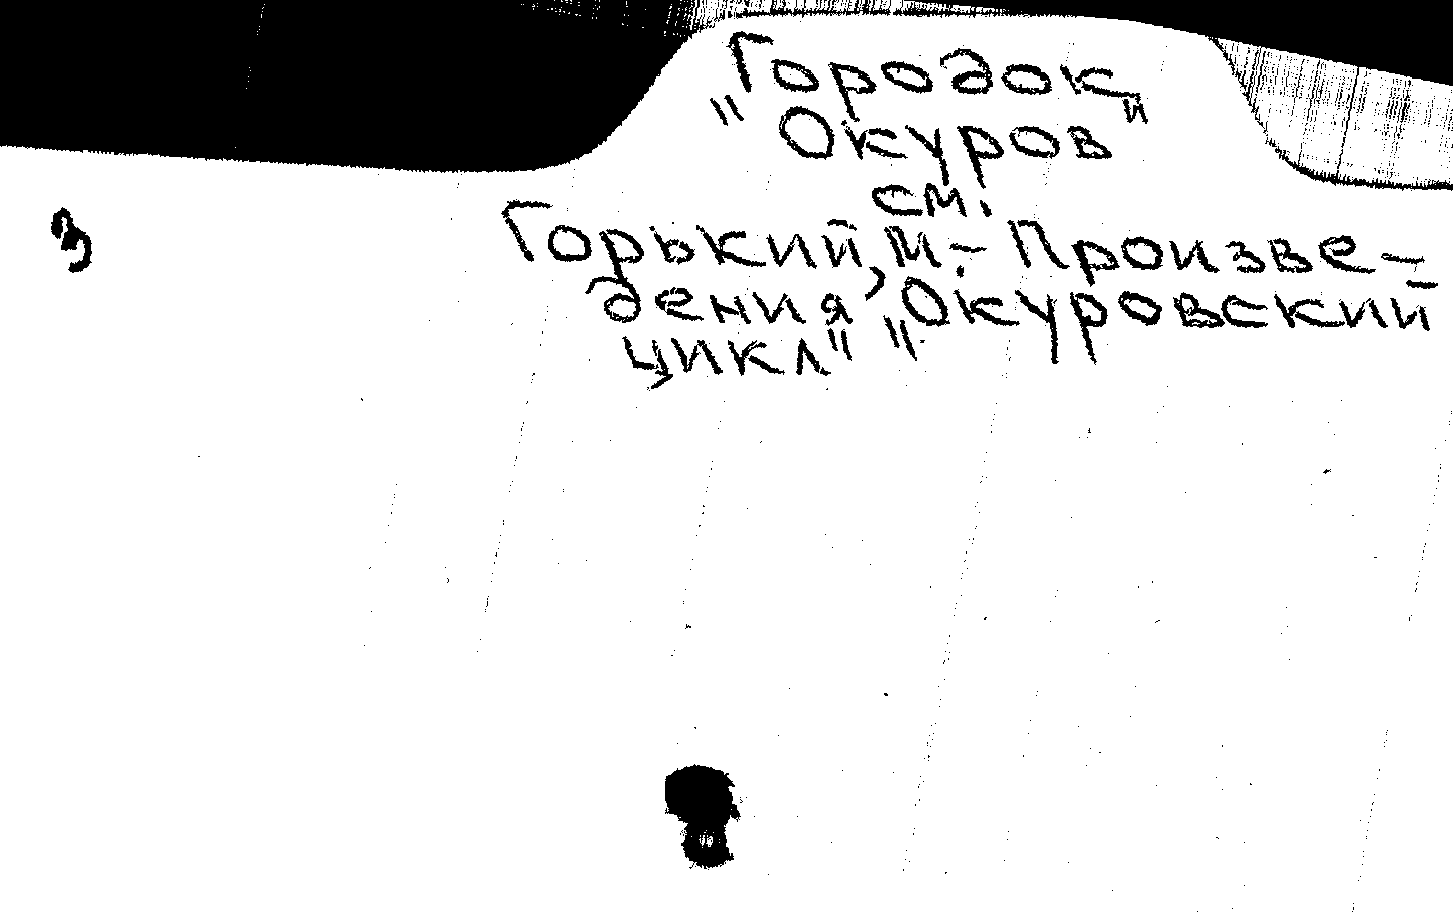 Городок
"Окуров"
см.
3
Горький, М. - Произве-
дения, "Окуровский
цикл"